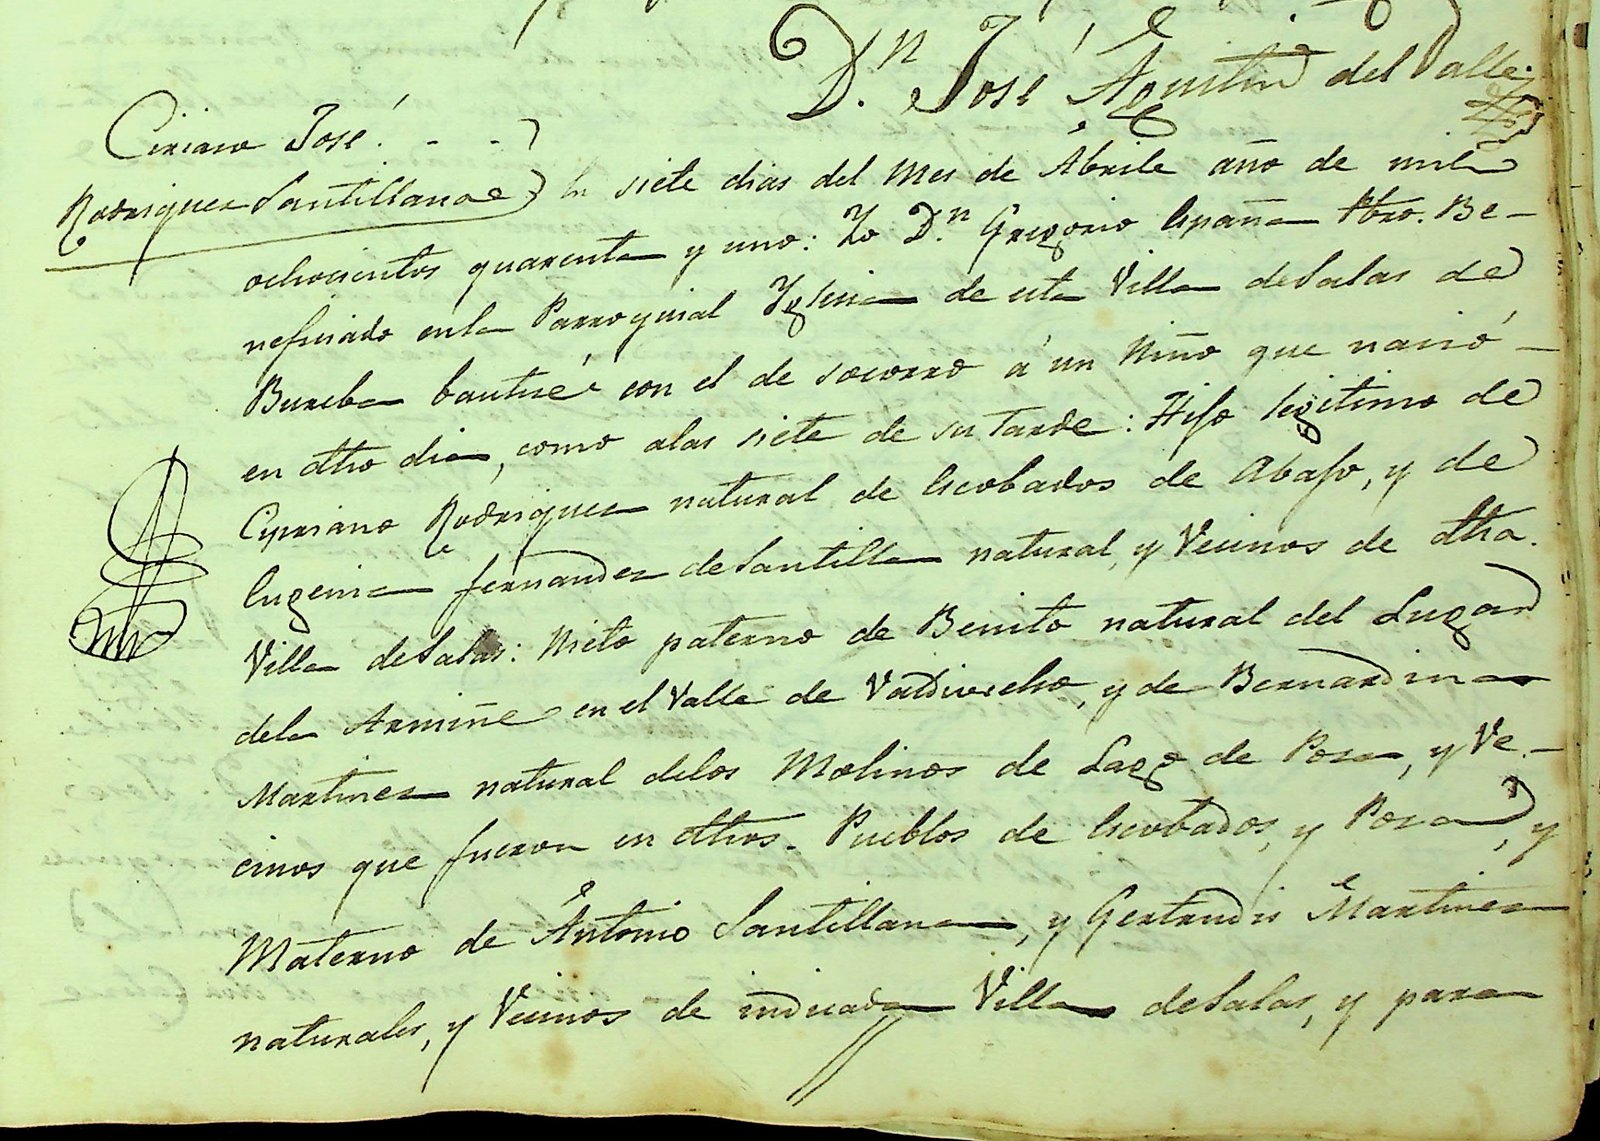 Dn José Agustin del Valle
Ciriaco José
Rodriguez Santillana
En siete dias del Mes de Abrile año de mil
ochocientos quarenta y uno: Yo Dn Gregorio España Pbro. Be-
neficiado enla Parroquial Yglesia de esta Villa deSalas de
Bureba bautizé con el de socorro á un Niño que nació
en dho dia, como alas siete de su Tarde: Hijo legitimo de
Cipriano Rodriguez natural de Escobados de Abajo, y de
Eugenia fernandez deSantilla natural, y Vecinos de dha.
Villa deSalas: Nieto paterno de Benito natural del Lugar
dela Armiñe en el Valle de Valdivielso, y de Bernardina
Martinez natural delos Molinos de Lago de Poza, y Ve-
cinos que fueron en dhos. Pueblos de Escobados, y Poza, y
Materno de Antonio Santillana, y Gertrudis Martinez
naturales, y Vecinos de indicada Villa deSalas, y para